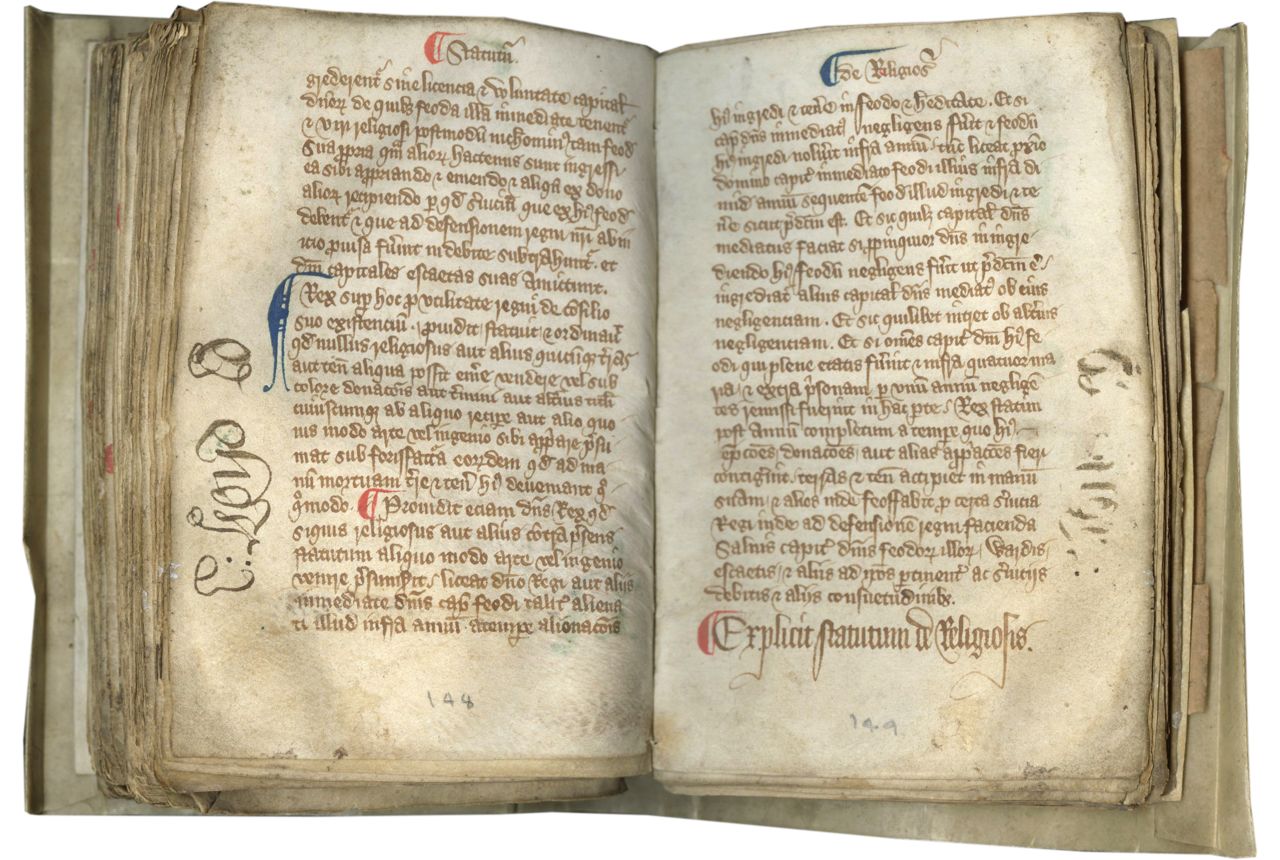 Statutũ
grederent̃ sine licencia ⁊ voluntate capital̃
dñor̃ de quib; feoda illa inmediate tenent̃
⁊ viri religiosi postmodũ nichomin⁹ tam feod̃
sua ꝓpria q̃m alior̃ hactenus sunt ingressi
ea sibi apꝓpriando ⁊ emendo ⁊ aliq̃n ex dono
alior̃ recipiendo ꝑ qd̃ s̃uicia que ex hi⁹ feod̃
debent̃ ⁊ que ad defensionem regni nr̃i ab in
icio ꝓuisa fũint indebite subtrahunt̃. et
dñi capitales escaetas suas Amittunt.
Rex suꝑ hoc ꝓ vtilitate regni de cõsilio
suo existenciũ. ꝓuidit statuit ⁊ ordinauit
qd̃ nullus religiosus aut alius quicũq; t̃ras
aut teñ aliqua possit em̃e vendere vel sub
colore donacõis aut t̃mini aut alt̃ius tituli
cuiuscumq; ab aliquo reciꝑe aut alio quo
uis modo arte vel ingenio sibi apꝓpare p̃su
mat sub forisfact̃a eor̃dem qd̃ ad ma
nũ mortuam t̃re ⁊ teñ hi⁹ deueniant q̃
q̃modo. Prouidit eciam dñs Rex qd̃
siquis religiosus aut alius cõtra p̃sens
statutum aliquo modo arte vel ingenio
venire p̃sumpsit̃. liceat dño Regi aut alijs
inmediate dñis cap̃ feodi talit̃ aliena
ti illud infra annũ. a tempe alienacõis
de Religios̃
hi⁹ ingredi ⁊ teñe in feodo ⁊ h̃editate. Et si
cap̃ dñs inmediat⁹ negligens fũit ⁊ feodũ
hi⁹ ingredi noluit̃ infra annũ. tũc liceat ꝓxĩo
domino capit̃ inmediato feodi illius infra di
mid̃ annũ sequente feod̃ illud ingredi ⁊ te
ñe sicut p̃dcm est. Et sic quil; capital̃ dñs
mediatus faciat si ꝓpinquior dñs in ingre
diendo hi⁹ feodũ negligens fũit ut p̃dcm ẽ.
ingrediat̃ alius capital̃ dñs mediat⁹ ob eius
negligenciam. Et sic quilibet int̃et ob alt̃ius
negligenciam. Et si om̃es capit̃ dñi hi⁹ fe
odi qui plene etatis fũint ⁊ infra quatuor ma
ria ⁊ extra p̃sonam. ꝑ vnũ annũ negligẽ
tes ⁊ remissi fuerint in hac p̃te. Rex statim
post annũ completum a tempe quo hi⁹
epc̃oes donac̃oes aut alias apꝓpac̃oes fieri
contigint̃. terras ⁊ teñ accipiet in manũ
suam. ⁊ alios inde feoffabit. ꝑ certa s̃uicia
Regi inde ad defensionẽ regni facienda
Saluis capit̃ dñis feodor̃ illor̃ Wardis.
escaetis. ⁊ alijs ad ip̃os ꝑtinent̃ ac s̃uicijs
debitis ⁊ alijs consuetudinib;.
Explicit statutum de Religiosis.
148
149